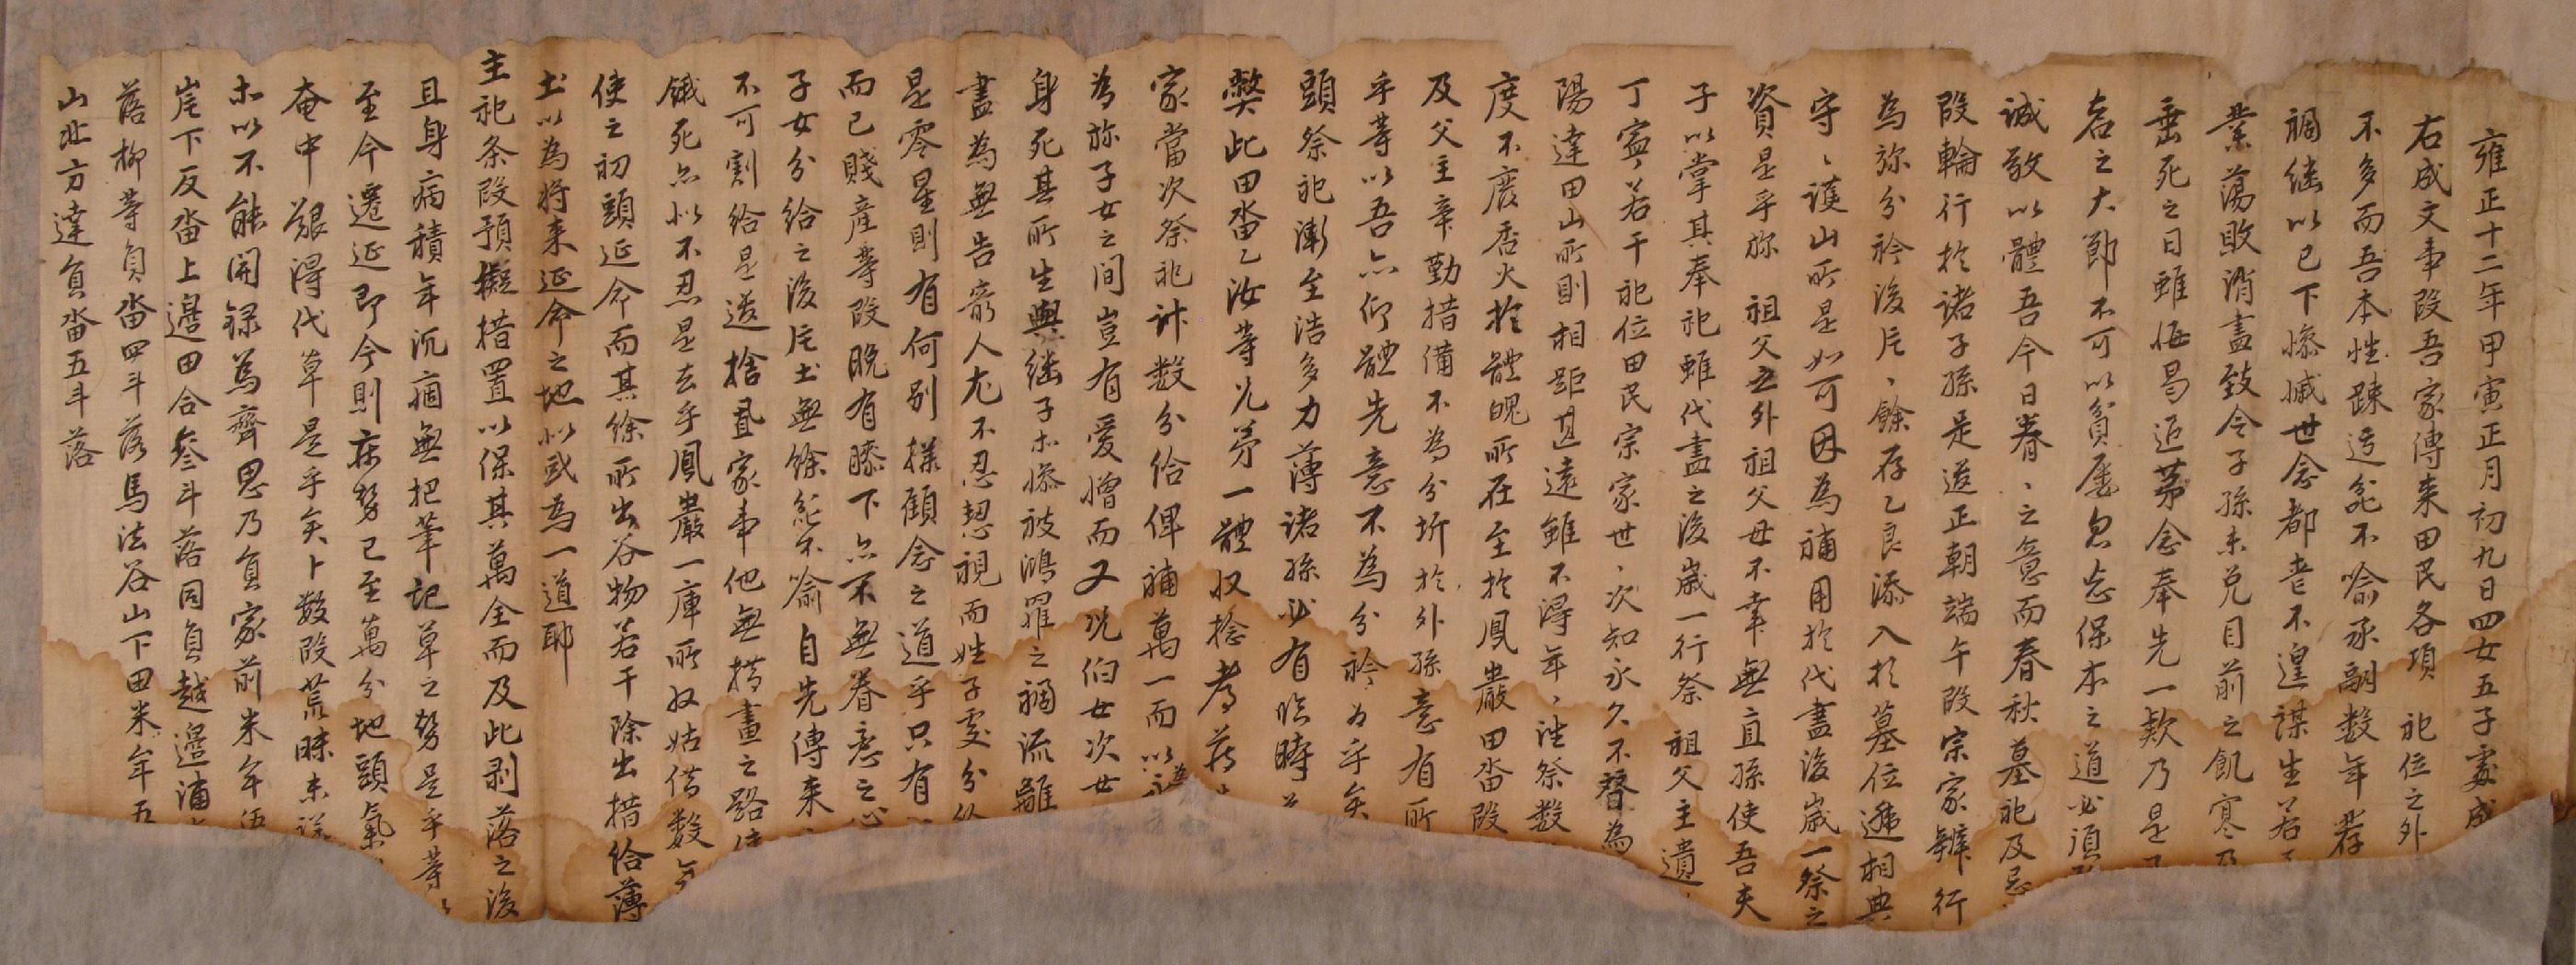 雍正十二年甲寅正月初九日四女五子處成
右成文事段吾家傳来田民各項 祀位之外
不多而吾本性踈迂兺不喩承嗣数年荐
禍継以已下慘慽世念都喪不遑謀生若
業蕩敗消盡致令子孫未免目前之飢寒乃
垂死之日雖悔曷追苐念奉先一款乃是
君之大節不可以貧屡忽忘保本之道必須
誠敬以軆吾今日眷〃之意而春秋墓祀及忌
段輪行於諸子孫是遣正朝端午段宗家辦行
為旀分衿後片〃餘存乙良添入於墓位遞相典
守〃護山所是如可因為補用於代盡後歲一祭之
資是乎旀 祖父主外祖父母不幸無直孫使吾夫
子以掌其奉祀雖代盡之後歲一行祭 祖父主遺
丁寧〃若干祀位田民宗家世〃次知永久不替為
陽達田山所則相距甚遠雖不得年〃徃祭数
度不廢香火於軆魄所在至於鳳巖田畓段
及父主辛勤措備不為分折於外孫意有所
乎等以吾亦仰軆先意不為分衿為乎矣
頭祭祀漸至浩多力薄諸孫必有臨時
弊此田畓乙汝等兄弟一軆收捻專
家當次祭祀計数分給俾補萬一而以
為旀子女之間豈有愛憎而又况伯女次女
身死其所生與継子亦慘被鴻罹之禍流離
盡為無告窮人尤不忍恝視而姓子處分給
是零星則有何別様顧念之道乎只有
而已賤産等段晩有膝下亦不無眷意之心
子女分給之後片土無餘兺不喩自先傳来
不可割給是遣捨且家事他無措畫之路
餓死亦似不忍是去乎鳳巖一庫所收姑借数年
使之初頭延命而其餘所出谷物若干除出措給薄
土以為将来延命之地似或為一道耶
主祀条段預擬措置以保其萬全而及此剥落之後
且身病積年沉痼無把筆記草之勢是乎等以
至今遷延即今則病勢已至萬分地頭氣
奄中艱得代草是乎矣卜数段荒昧未詳
亦以不能開録為齊思乃員家前米年伍
崖下反畓上邊田合叄斗落同員越邊浦
落柳等員畓四斗落馬法谷山下田米年五
山北方達員畓五斗落